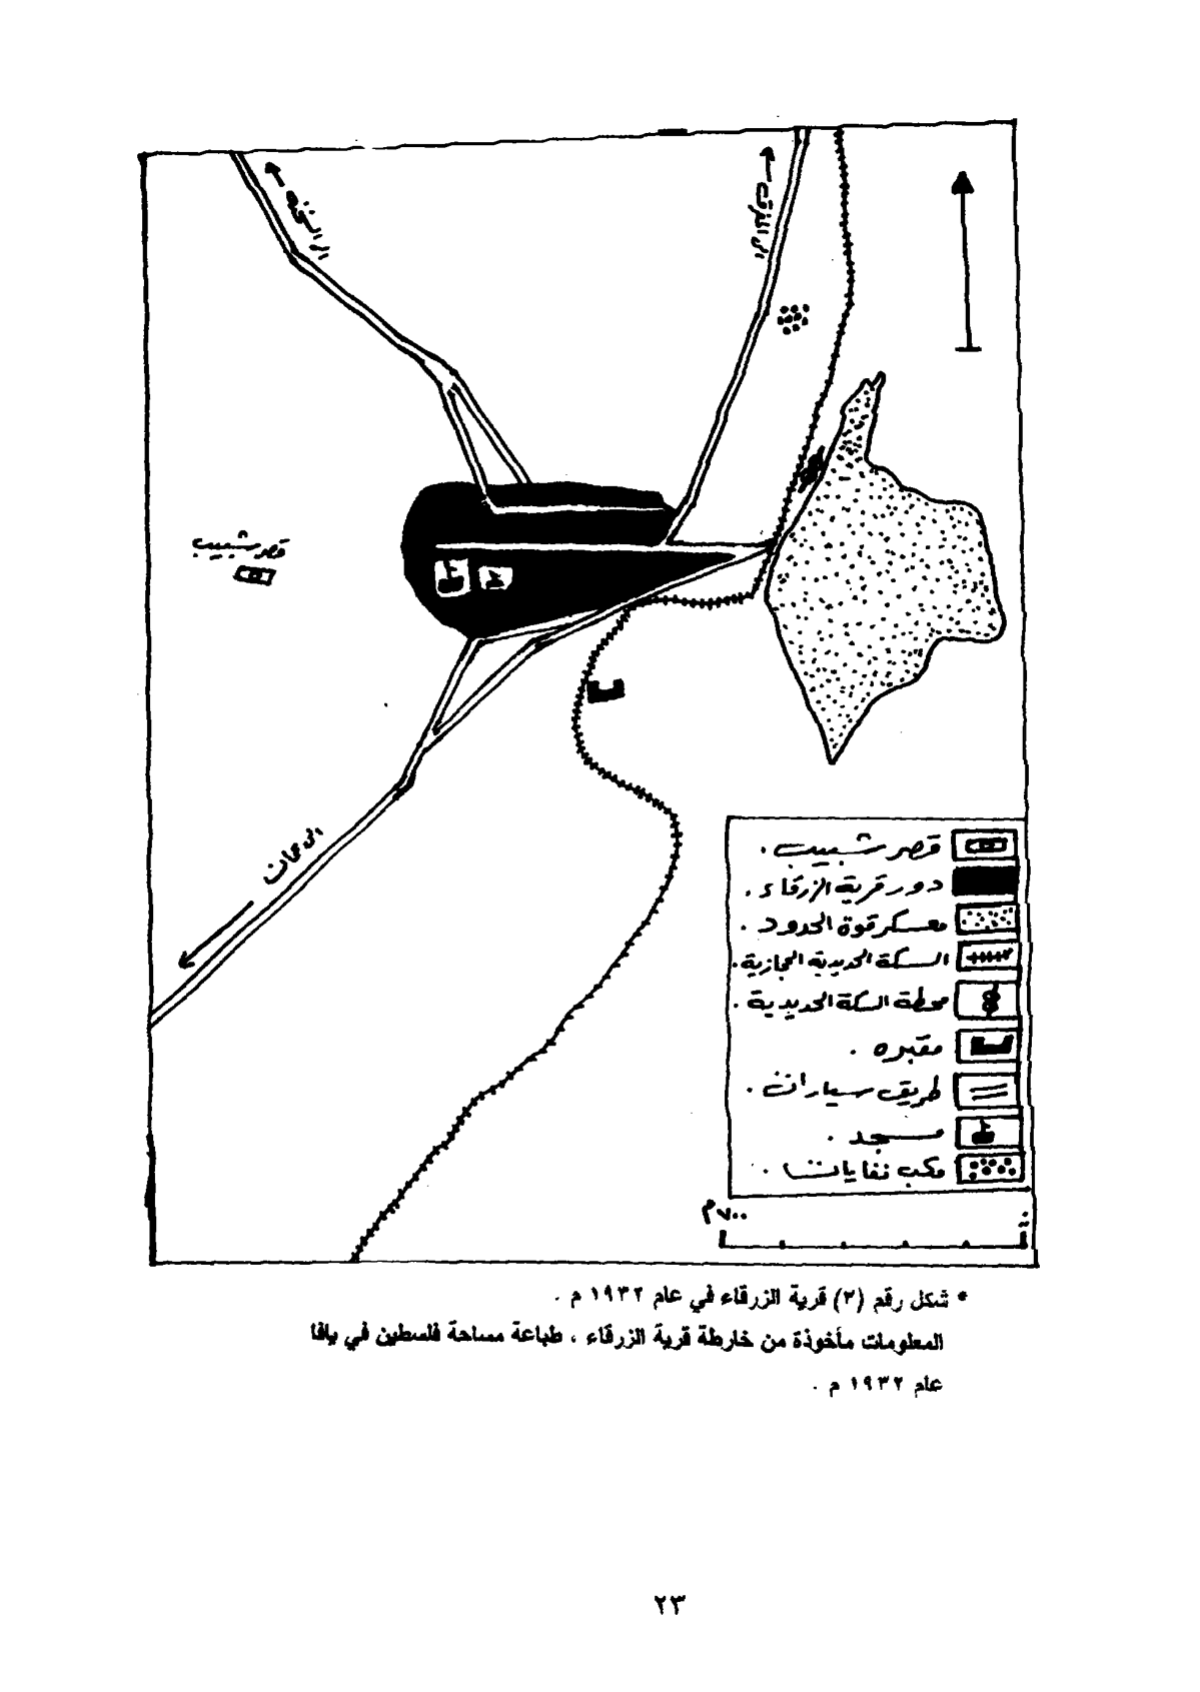 الى السخنه
الى المفرق
قصر شبيب
الى عمان
قصر شبيب .
دور قرية الزرقاء .
معسكر قوة الحدود .
السكة الحديدية الحجازية .
محطة السكة الحديدية .
مقبره .
طريق سيارات .
مسجد .
مكب نفايات .
٧٠٠م
* شكل رقم (٢) قرية الزرقاء في عام ١٩٣٢ م .
المعلومات مأخوذة من خارطة قرية الزرقاء ، طباعة مساحة فلسطين في يافا
عام ١٩٣٢ م .
٢٣